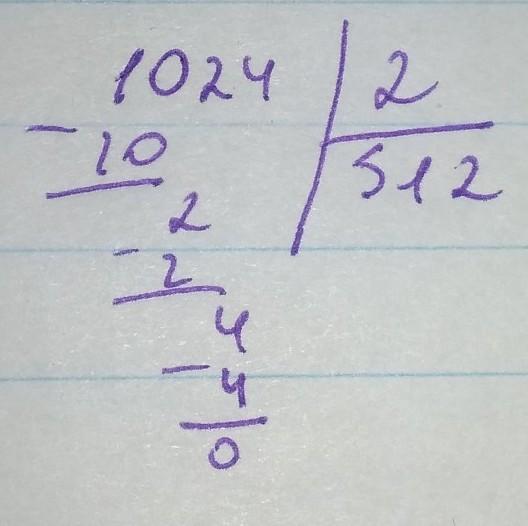 1024 2
- 10 512
2
- 2
4
- 4
0